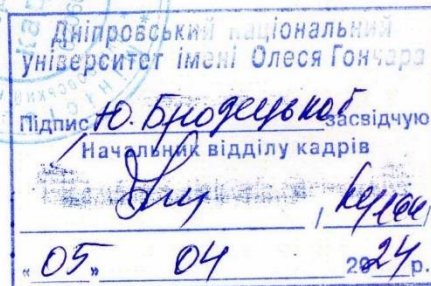 Дніпровський національний
університет імені Олеся Гончара
Підпис Ю. Бродецької засвідчую
Начальник відділу кадрів
"05" 04 2024 р.